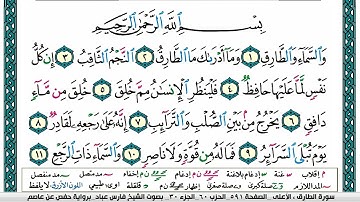 بِسْمِ ٱللَّهِ ٱلرَّحْمَٰنِ ٱلرَّحِيمِ
وَٱلسَّمَآءِ وَٱلطَّارِقِ ١ وَمَآ أَدْرَىٰكَ مَا ٱلطَّارِقُ ٢ ٱلنَّجْمُ ٱلثَّاقِبُ ٣ إِن كُلُّ
نَفْسٍ لَّمَّا عَلَيْهَا حَافِظٌ ٤ فَلْيَنظُرِ ٱلْإِنسَٰنُ مِمَّ خُلِقَ ٥ خُلِقَ مِن مَّآءٍ
دَافِقٍ ٦ يَخْرُجُ مِنۢ بَيْنِ ٱلصُّلْبِ وَٱلتَّرَآئِبِ ٧ إِنَّهُۥ عَلَىٰ رَجْعِهِۦ لَقَادِرٌ ٨
يَوْمَ تُبْلَى ٱلسَّرَآئِرُ ٩ فَمَا لَهُۥ مِن قُوَّةٍ وَلَا نَاصِرٍ ١٠ وَٱلسَّمَآءِ ذَاتِ ٱلرَّجْعِ ١١
سورة الطارق، الأعلى الصفحة ٥٩١ الحزب ٦٠ الجزء ٣٠ بصوت الشيخ فارس عباد برواية حفص عن عاصم